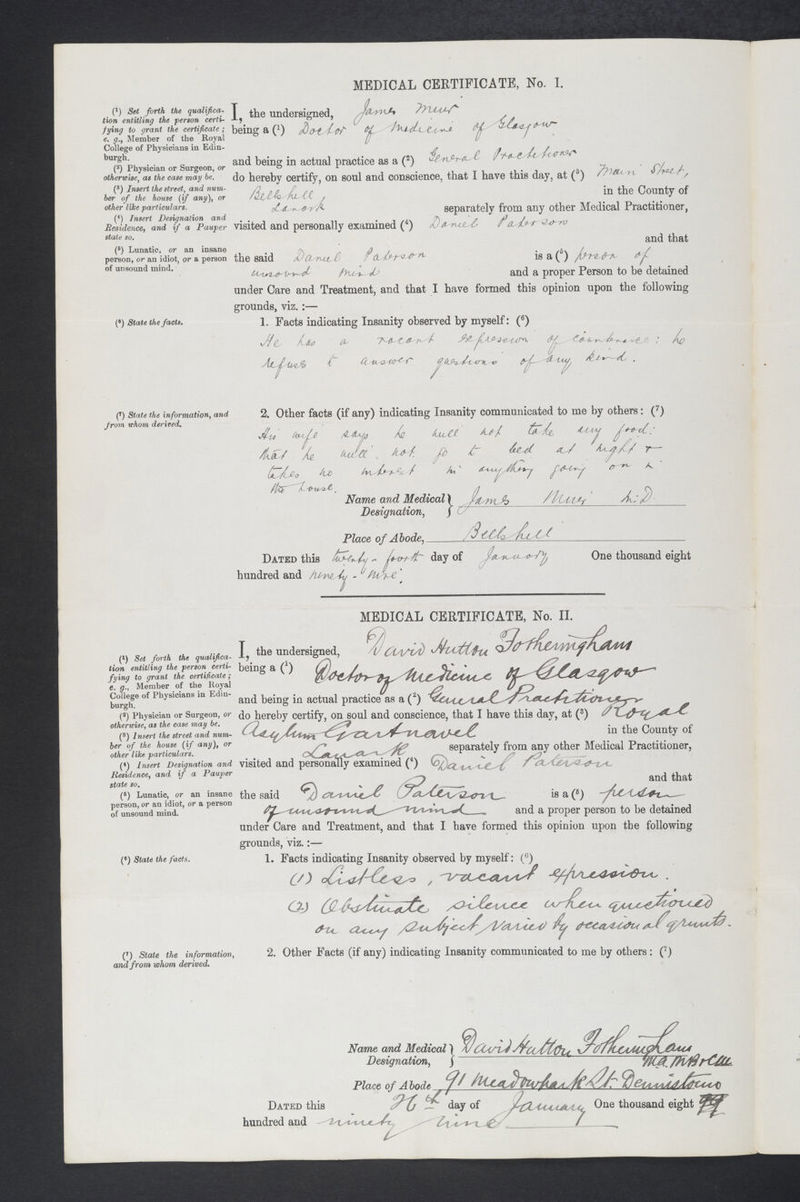 MEDICAL CERTIFICATE, No. I.
(¹) Set forth the qualifica-
tion entitling the person certi-
fying to grant the certificate;
e. g., Member of the Royal
College of Physicians in Edin-
burgh.
(²) Physician or Surgeon, or
otherwise, as the case may be.
(³) Insert the street, and num-
ber of the house (if any), or
other like particulars.
(⁴) Insert Designation and
Residence, and if a Pauper
state so.
(⁵) Lunatic, or an insane
person, or an idiot, or a person
of unsound mind.
I, the undersigned, James Muir
being a (¹) Doctor of Medicine of Glasgow
and being in actual practice as a (²) General Practitioner
do hereby certify, on soul and conscience, that I have this day, at (³) Main Street,
Bellshill, in the County of
Lanark separately from any other Medical Practitioner,
visited and personally examined (⁴) Daniel Paterson
and that
the said Daniel Paterson is a (⁵) person of
unsound mind and a proper Person to be detained
under Care and Treatment, and that I have formed this opinion upon the following
grounds, viz. :—
(⁶) State the facts.
1. Facts indicating Insanity observed by myself: (⁶)
He has a vacant expression of countenance: he
refuses to answer questions of any kind.
(⁷) State the information, and
from whom derived.
2. Other facts (if any) indicating Insanity communicated to me by others: (⁷)
His wife says he will not take any food:
that he will not go to bed at night &
takes no interest in anything going on in
the house.
Name and Medical Designation, James Muir M.D.
Place of Abode, Bellshill
DATED this twenty-fourth day of January One thousand eight
hundred and ninety-nine.
MEDICAL CERTIFICATE, No. II.
(¹) Set forth the qualifica-
tion entitling the person certi-
fying to grant the certificate;
e. g., Member of the Royal
College of Physicians in Edin-
burgh.
(²) Physician or Surgeon, or
otherwise, as the case may be.
(³) Insert the street and num-
ber of the house (if any), or
other like particulars.
(⁴) Insert Designation and
Residence, and if a Pauper
state so.
(⁵) Lunatic, or an insane
person, or an idiot, or a person
of unsound mind.
I, the undersigned, David Hutton Fotheringham
being a (¹) Doctor of Medicine of Glasgow
and being in actual practice as a (²) General Practitioner
do hereby certify, on soul and conscience, that I have this day, at (³) Royal
Asylum Gartnavel in the County of
Lanark separately from any other Medical Practitioner,
visited and personally examined (⁴) Daniel Paterson
and that
the said Daniel Paterson is a (⁵) person
of unsound mind and a proper person to be detained
under Care and Treatment, and that I have formed this opinion upon the following
grounds, viz. :—
(⁶) State the facts.
1. Facts indicating Insanity observed by myself: (⁶)
(1) Listless, vacant expression.
(2) Obstinate silence when questioned
on any subject varied by occasional grunts.
(⁷) State the information,
and from whom derived.
2. Other Facts (if any) indicating Insanity communicated to me by others: (⁷)
Name and Medical Designation, David Hutton Fotheringham
M.A. M.B. & C.M.
Place of Abode 91 Meadowpark St. Dennistoun
DATED this 26th day of January One thousand eight
hundred and ninety nine